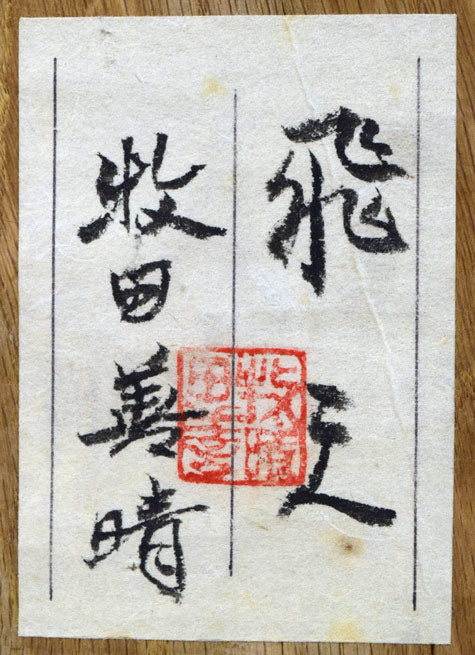 飛天
牧田善晴